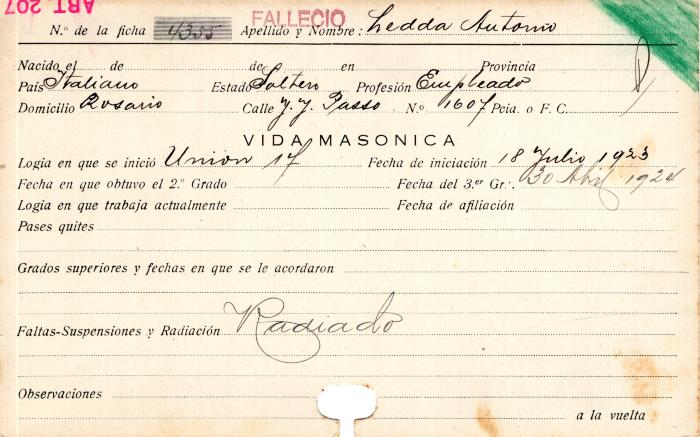 ART. 207
FALLECIO
N.º de la ficha 4355 Apellido y Nombre: Ledda Antonio
Nacido el de de en Provincia
País Italiano Estado Soltero Profesión Empleado
Domicilio Rosario Calle J. J. Passo N.º 1607 Pcia. o F. C.
VIDA MASONICA
Logia en que se inició Union 17 Fecha de iniciación 18 Julio 1923
Fecha en que obtuvo el 2.º Grado Fecha del 3.er Gr.·. 30 Abril 1924
Logia en que trabaja actualmente Fecha de afiliación
Pases quites
Grados superiores y fechas en que se le acordaron
Faltas-Suspensiones y Radiación Radiado
Observaciones
a la vuelta